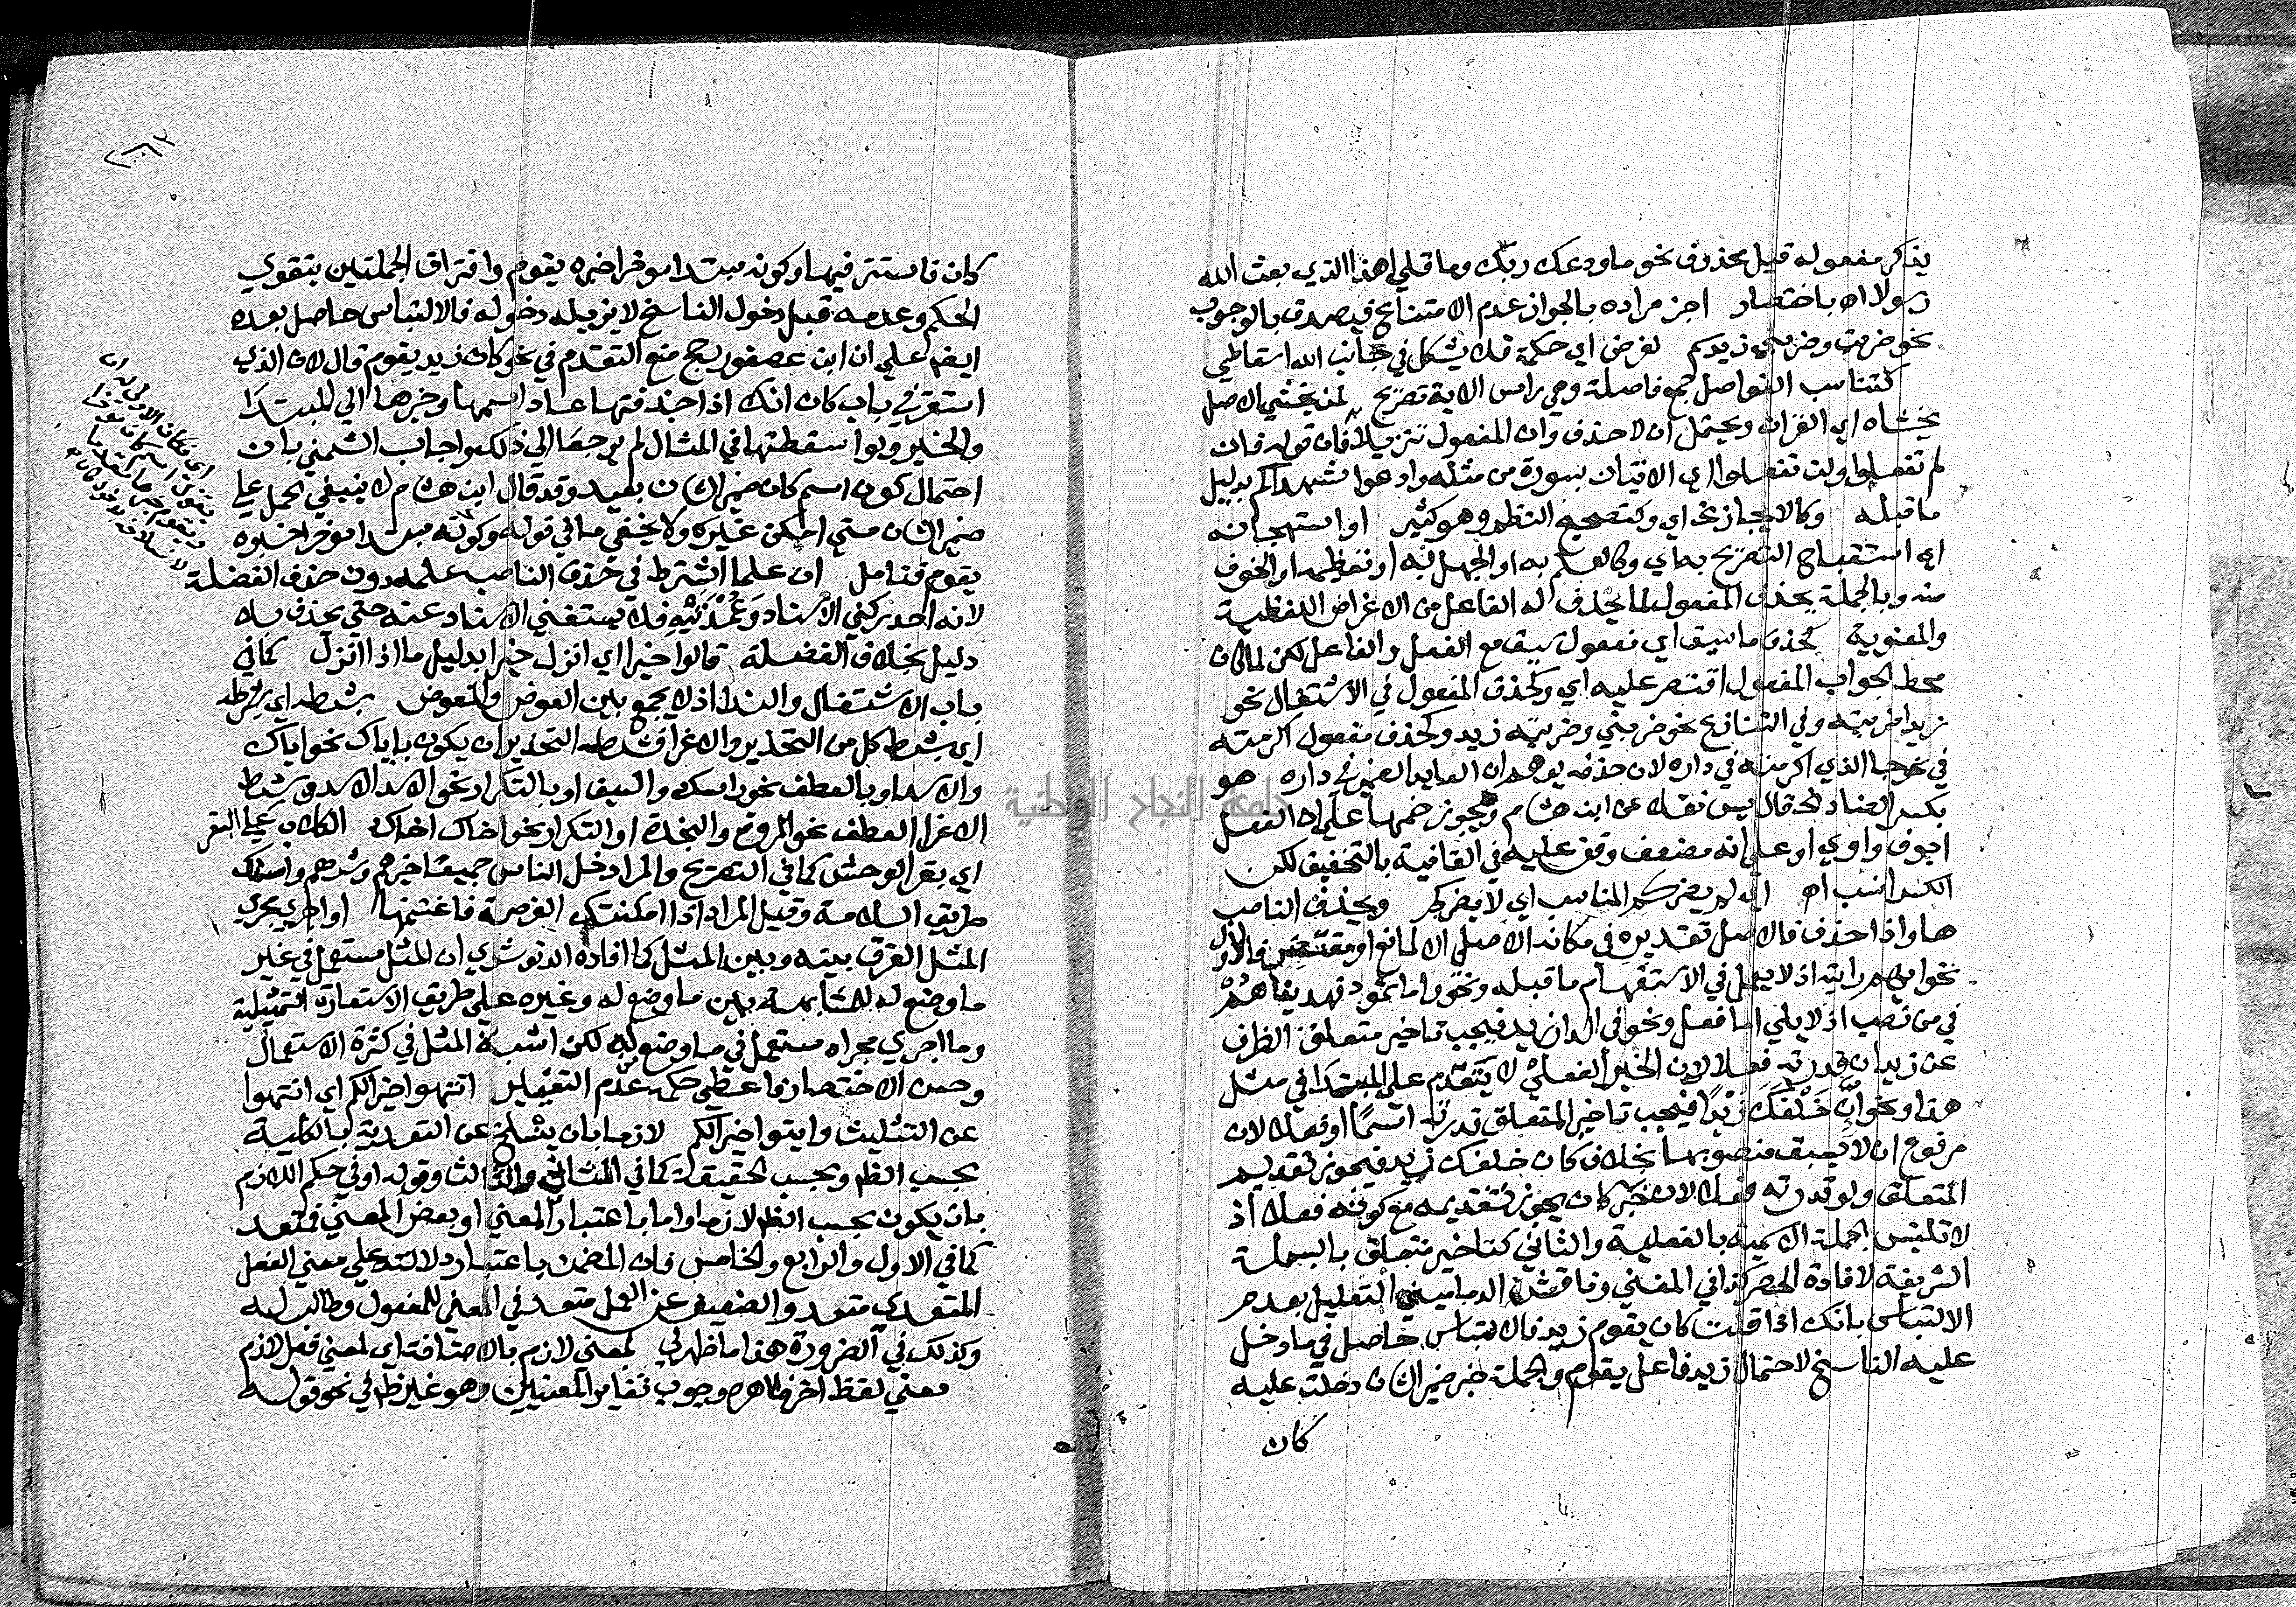 يذكر مفعوله قيل محذوف نحو ما ودعك ربك وما قلي اهذا الذي بعث الله
رسولا اه باختصار اجز مراده بالجواز عدم الامتناع فيصدق بالوجوب
نحو ضربت وضربني زيدكم لغرض اي حكمة فلا يشكل في جانب الله اسقاطي
كتناسب الفواصل جمع فاصلة وهي راس الاية تصريح لمن يخشي الاصل
يخشاه اي القران ويحتمل ان لا حذف وان المفعول تنزيلا فان قوله فان
لم تفعلوا ولن تفعلوا اي الاتيان بسورة من مثله وادعوا شهداكم بدليل
ما قبله وكالايجاز نحو اي وكتصحيح النظم وهو كثير او استهجانه
اي استقباح التصريح به اي وكالعلم به او الجهل به او تعظيمه او الخوف
منه وبالجملة يحذف المفعول لما يحذف له الفاعل من الاغراض اللفظية
والمعنوية كحذف ما سيق اي مفعول سيق مع الفعل والفاعل لكن لما كان
محط الجواب المفعول اقتصر عليه اي وكحذف المفعول في الاشتغال نحو
زيدا ضربته وفي التنازع نحو ضربني وضربته زيد وكحذف مفعول اكرمته
في نحو جا الذي اكرمته في داره لان حذفه يوهم ان العايد الضمير في داره هو
بكسر الضاد الخ قال يس نقله عن ابن هشام ويجوز ضمها علي ان الفعل
اجوف واوي او علي انه مضعف وقف عليه في القافية بالتخفيف لكن
الكسر انسب اه اي لم يضركم المناسب اي لا يضركم ويحذف الناصب
ها واذا حذف فالاصل تقديره في مكانه الاصلي الا لمانع او مقتض فالاول
نحو ايهم رايته اذ لا يعمل في الاستفهام ما قبله ونحو واما ثمود فهديناهم
في من نصب اذ لا يلي اما فعل ونحو في الدار زيد فيجب تاخير متعلق الظرف
عن زيد ان قدرته فعلا لان الخبر الفعلي لا يتقدم علي المبتدا في مثل
هذا ونحو ان خلفك زيدا فيجب تاخير المتعلق قدرته اسما او فعلا لان
مرفوع ان لا يسبق منصوبها بخلاف كان خلفك زيد فيجوز تقديم
المتعلق ولو قدرته فعلا لان خبر كان يجوز تقديمه مع كونه فعلا اذ
لا تلتبس الجملة الاسمية بالفعلية والثاني كتاخير متعلق بالبسملة
الشريفة لافادة الحصر كذا في المغني وناقشه الدماميني التعليل بعدم
الالتباس بانك اذا قلت كان يقوم زيد فالالتباس حاصل في ما دخل
عليه الناسخ لاحتمال زيد فاعل يقوم والجملة خبر ضمير الشان دخلت عليه
كان
كان فاستتر فيها وكونه مبتدا موخرا خبره يقوم وافتراق الجملتين بتقوي
الحكم وعدمه قبل دخول الناسخ لا يزيله دخوله فالالتباس حاصل بعده
ايضا علي ان ابن عصفور رجح منع التقدم في نحو كان زيد يقوم قال لان الذي
استقر في باب كان انك اذا حذفتها عاد اسمها وخبرها الي المبتدا
والخبر ولو اسقطتها في المثال لم يرجعا الي ذلك واجاب الشمني بان
احتمال كون اسم كان ضمير الشان بعيد وقد قال ابن هشام لا ينبغي الحمل علي
ضمير الشان متي امكن غيره ولا يخفي ما في قوله وكونه مبتدا موخرا خبره
يقوم فتامل ان علما اشترط في حذف الناصب علمه دون حذف الفضلة
لانه احد ركني الاسناد وعمدتيه فلا يستغني الاسناد عنه حتي يحذف بلا
دليل بخلاف الفضلة قالوا خيرا اي انزل خيرا بدليل ما اذا انزل كما في
باب الاشتغال والندا اذ لا يجمع بين العوض والمعوض بشرطه اي بشرطه
اي بشرط كل من التحذير والاغرا فشرط التحذير ان يكون باياك نحو اياك
والاسد او بالعطف نحو راسك والسيف او بالتكرار نحو الاسد الاسد وشرط
الاغرا العطف نحو المروة والنجدة او التكرار نحو اخاك اخاك الكلاب علي البقر
اي بقر الوحش كما في التصريح والمراد خل الناس جميعا خيرهم وشرهم واسلك
طريق السلامة وقيل المراد اذا امكنتك الفرصة فاغتنمها او اجري مجري
المثل الفرق بينه وبين المثل كما افاده الدنوشري ان المثل مستعمل في غير
ما وضع له للمشابهة بين ما وضع له وغيره علي طريق الاستعارة التمثيلية
وما اجري مجراه مستعمل في ما وضع له لكن اشبه المثل في كثرة الاستعمال
وحسن الاختصار فاعطي حكمه من عدم التغيير انتهوا خيرا لكم اي انتهوا
عن التثليث وايتوا خيرا لكم لازما بان ينسلخ عن التعدية بالكلية
بحسب الظاهر وبحسب الحقيقة كما في الثاني والثالث وقوله او في حكم اللازم
بان يكون بحسب الظاهر لازما واما باعتبار المعني او بعض المعني فمتعد
كما في الاول والرابع والخامس فان المضمن باعتبار دلالته علي معني الفعل
المتعدي متعد والضعيف عن العمل متعد في المعني للمفعول وطالب له
وكذلك في الضرورة هذا ما ظهر لي لمعني لازم بالاضافة اي لمعني فعل لازم
معني لفظ اخر ظاهره وجوب تغاير المعنيين وهو غير ظاهر في نحو قوله